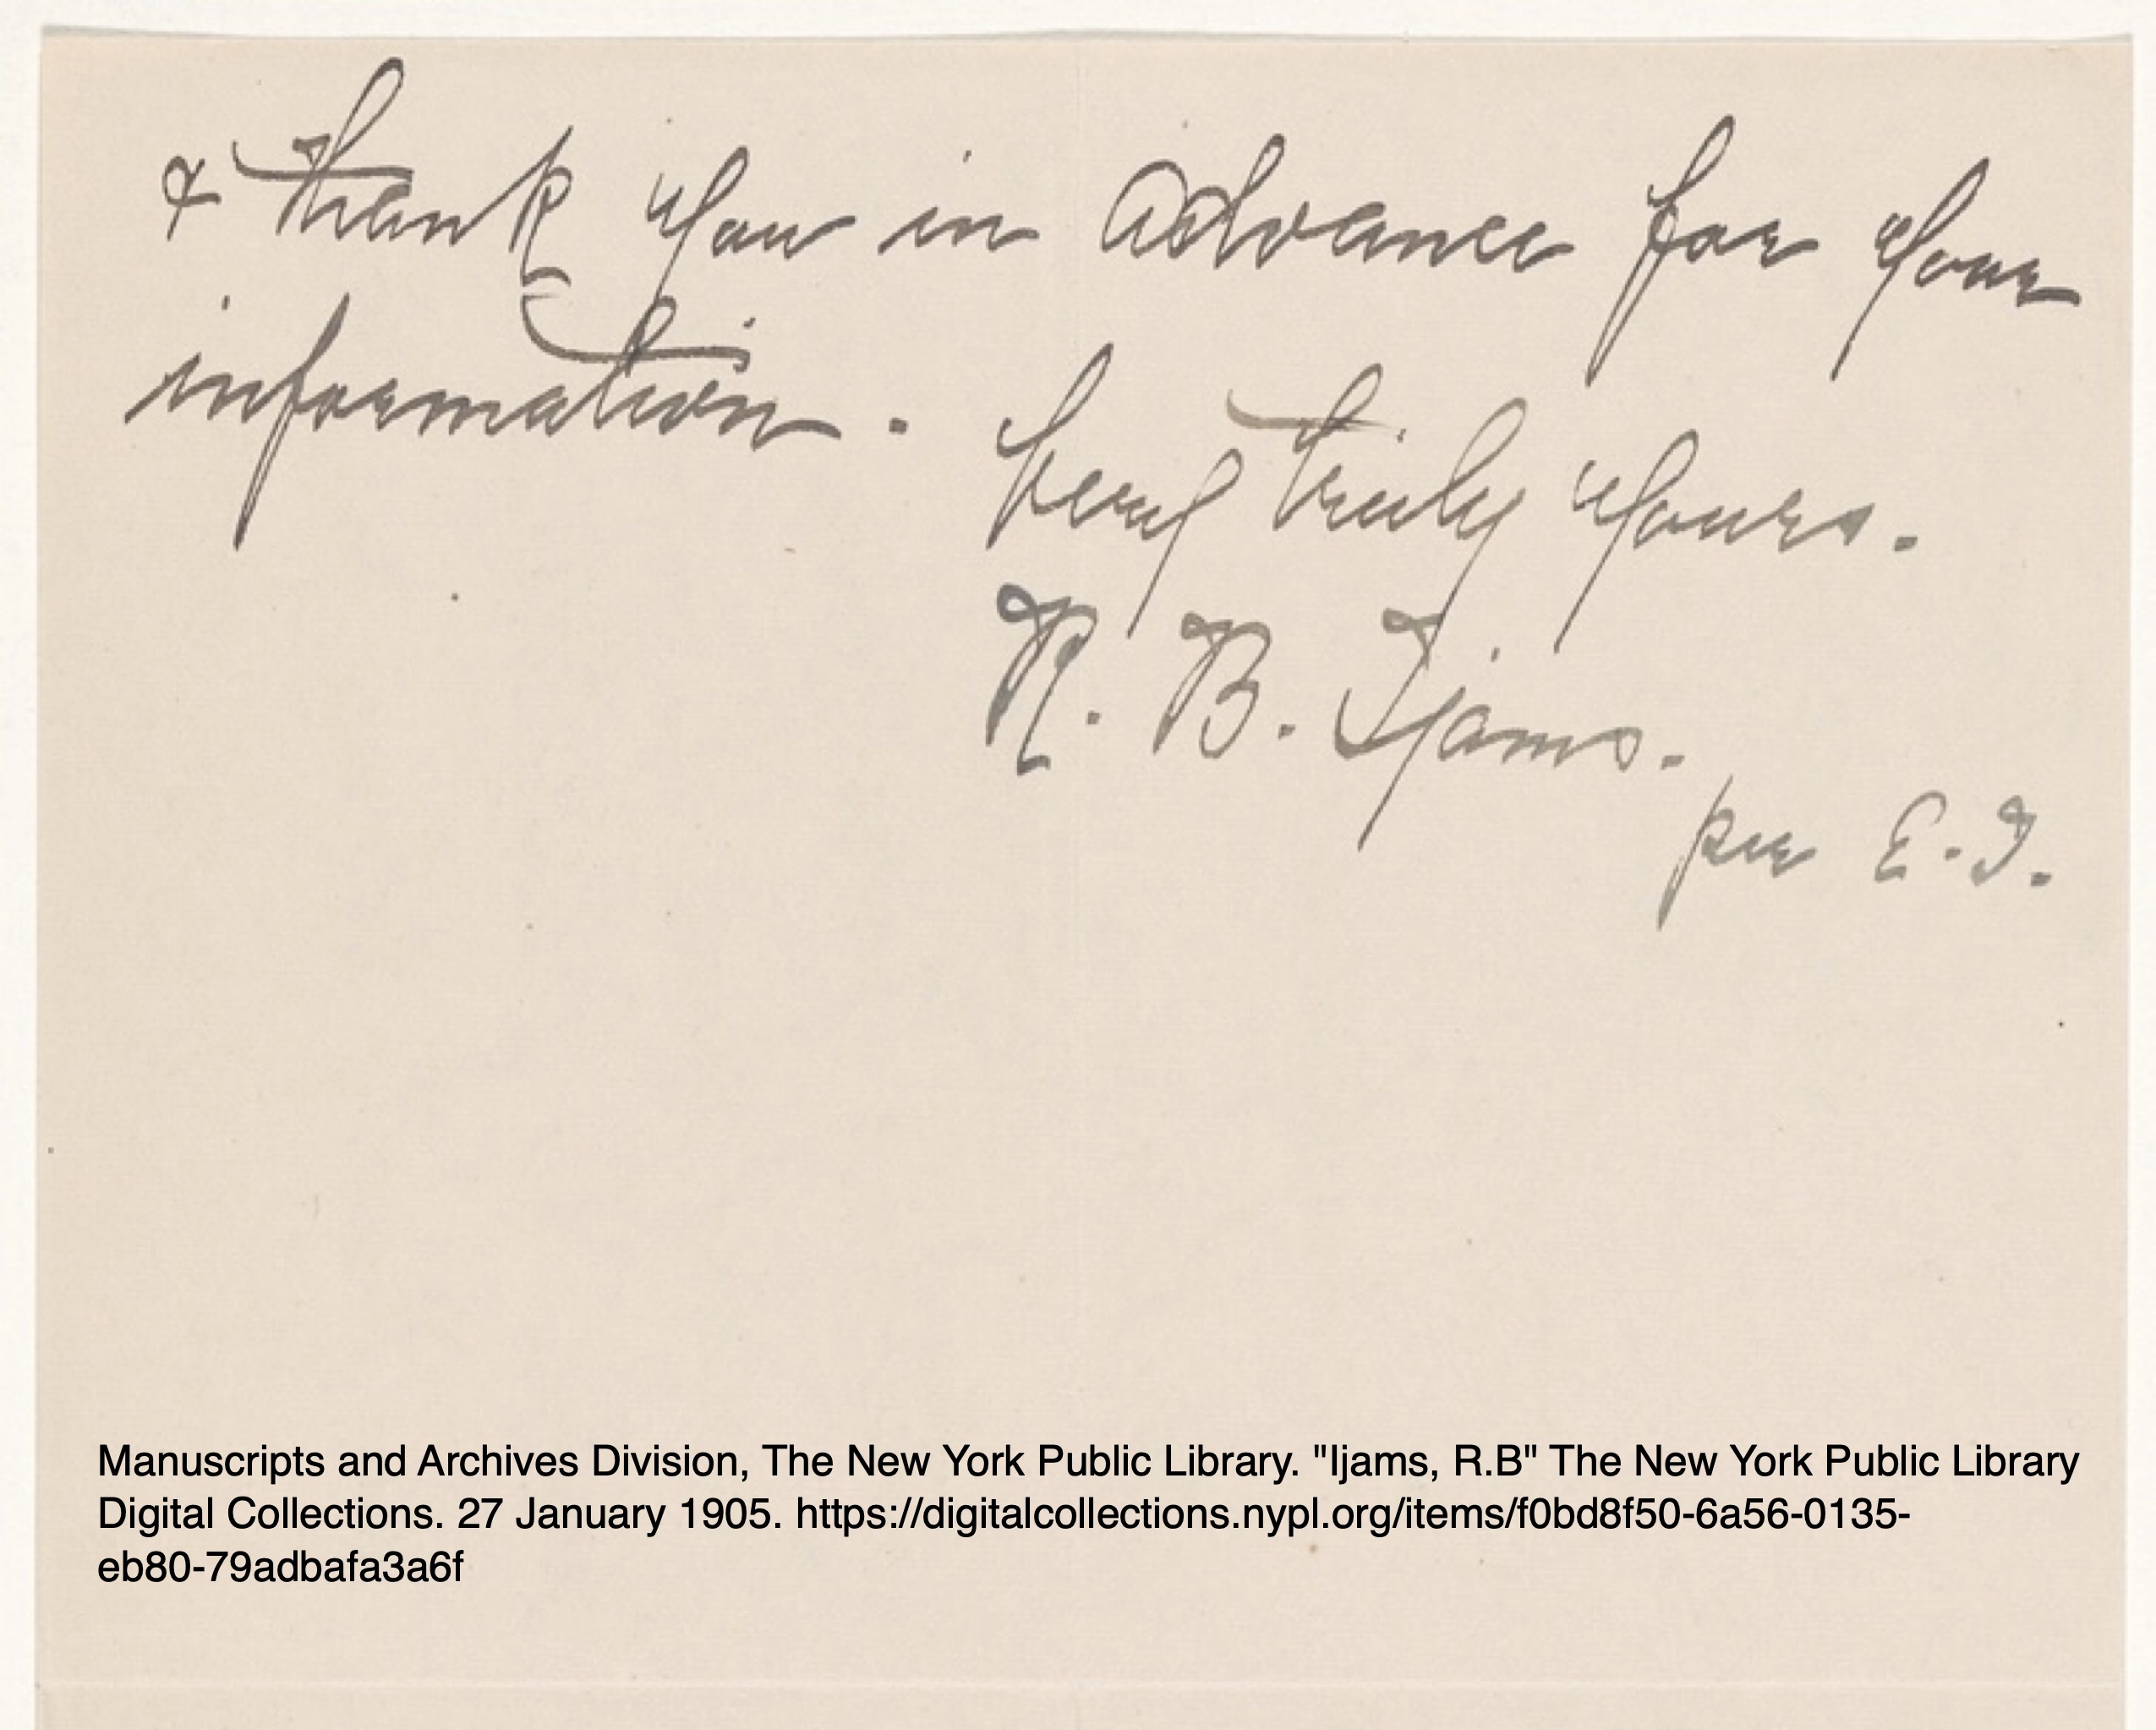 & thank you in advance for your
information.
Very truly yours.
R. B. Ijams.
per E. I.
Manuscripts and Archives Division, The New York Public Library. "Ijams, R.B" The New York Public Library
Digital Collections. 27 January 1905. https://digitalcollections.nypl.org/items/f0bd8f50-6a56-0135-
eb80-79adbafa3a6f